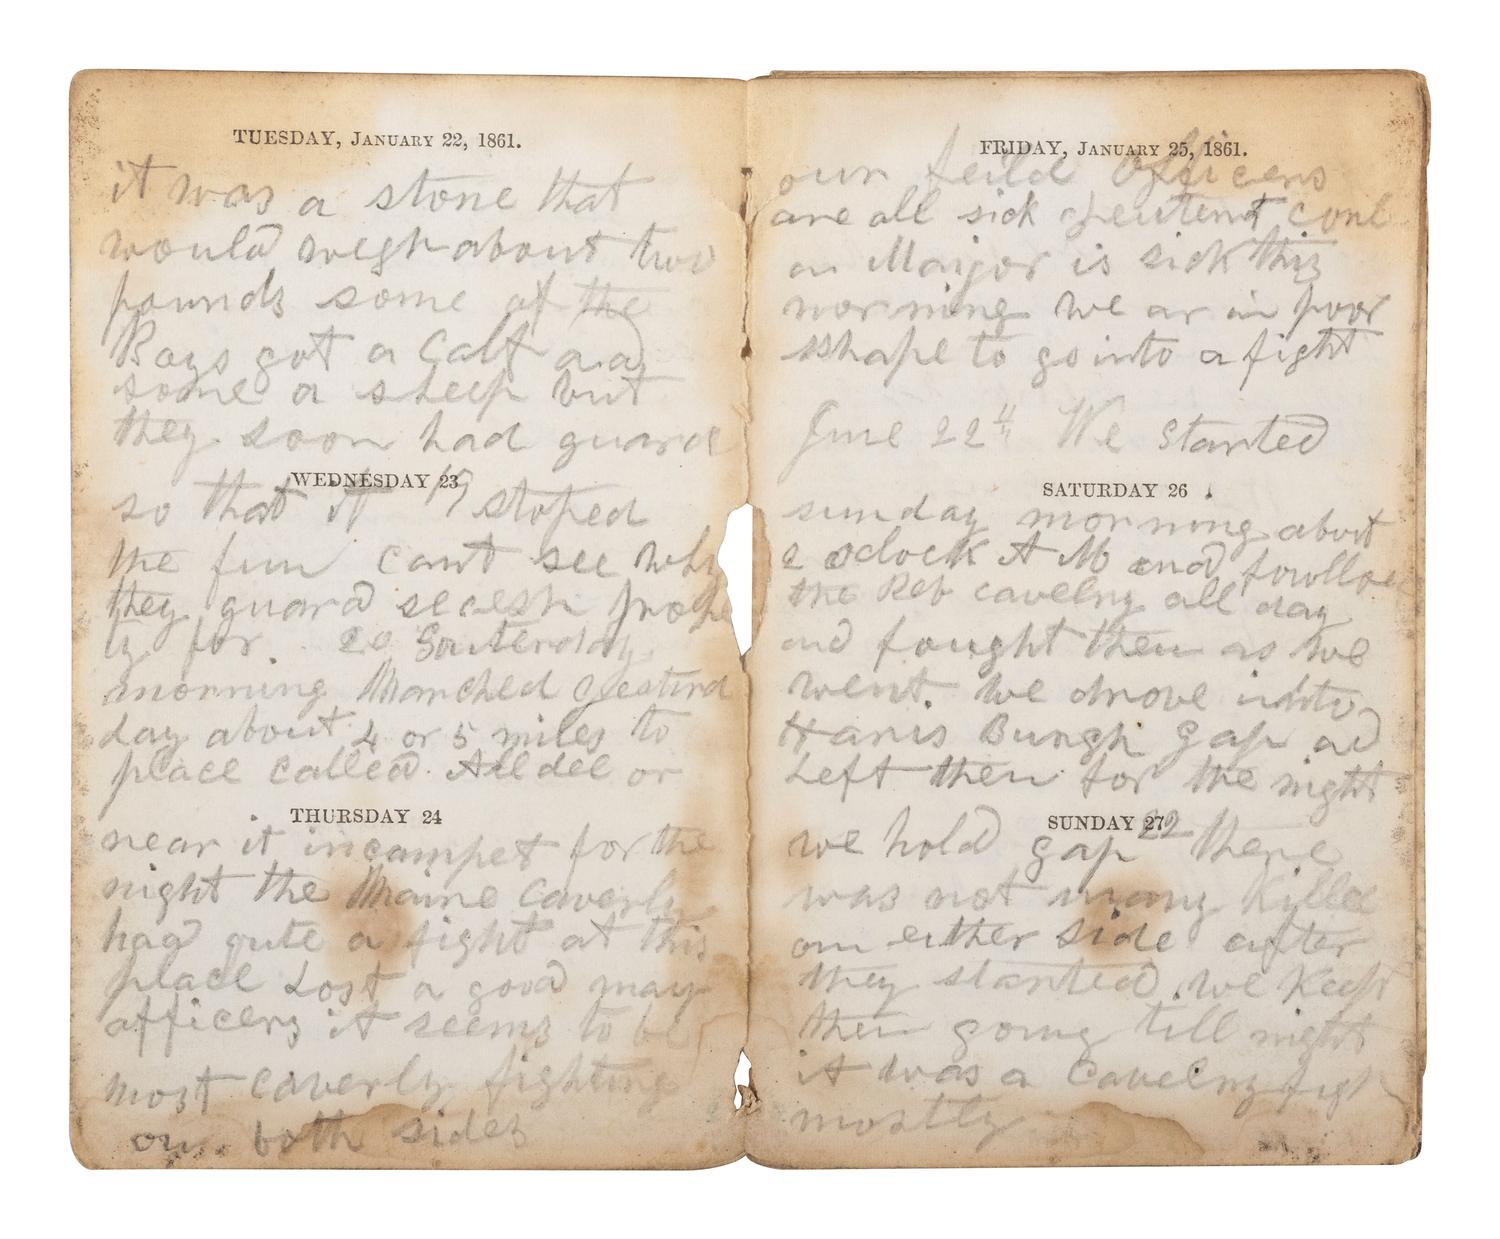 TUESDAY, JANUARY 22, 1861.
it was a stone that
would wegh about two
pounds some of the
Boys got a Calf and
some a sheep but
they soon had guard
WEDNESDAY 23
so that it 19 stoped
the fun cant see why
they guard secesh prope
ty for. 20 Sauterday
morning Marched yesterd
day about 4 or 5 miles to
place called Alldee or
THURSDAY 24
near it incampet for the
night the Maine Caverly
had qute a fight at this
place Lost a good may
officers it seems to be
most caverly fighting
on both sides
FRIDAY, JANUARY 25, 1861.
our feild Officers
are all sick Leutent conl
on Maijor is sick this
morning we ar in poor
shape to go into a fight
June 22th We started
SATURDAY 26
sunday morning about
2 oclock A M and fowllow
the Reb cavelry all day
and fought them as we
went. We drove into
Harris Burgh Gap ad
Left them for the night
SUNDAY 27
we hold gap 22 there
was not many killed
on either side after
they started we Keept
them going till night
it was a Cavelry figh
mostly